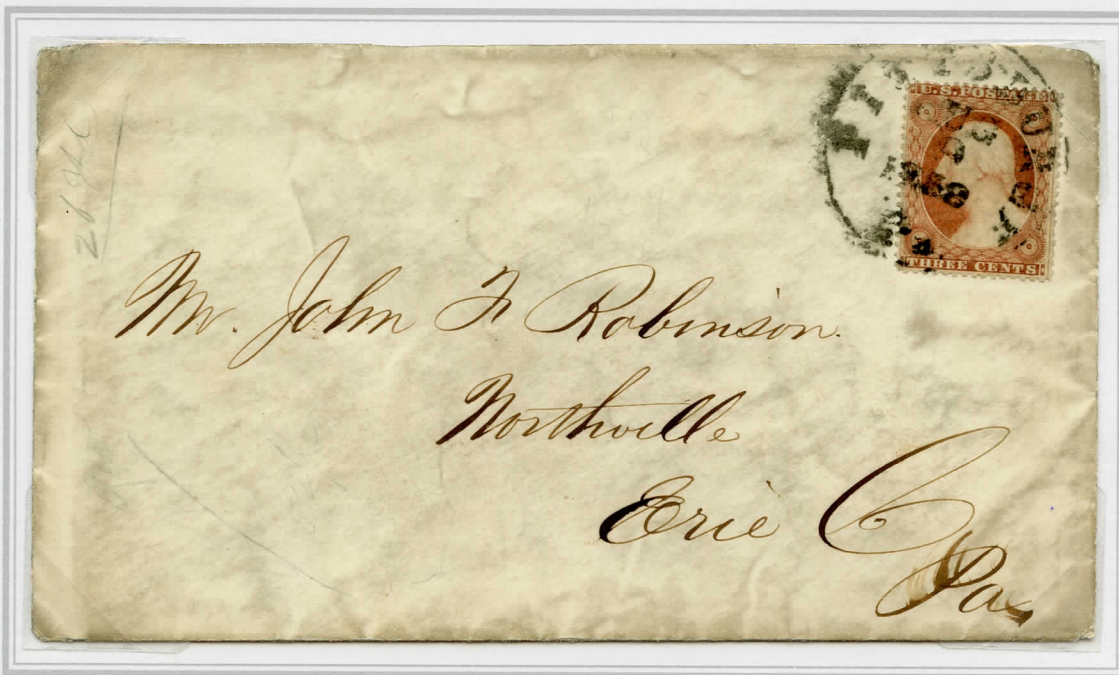 U.S. POSTAGE
THREE CENTS
Mr. John F Robinson.
Northville
Erie Co
Pa